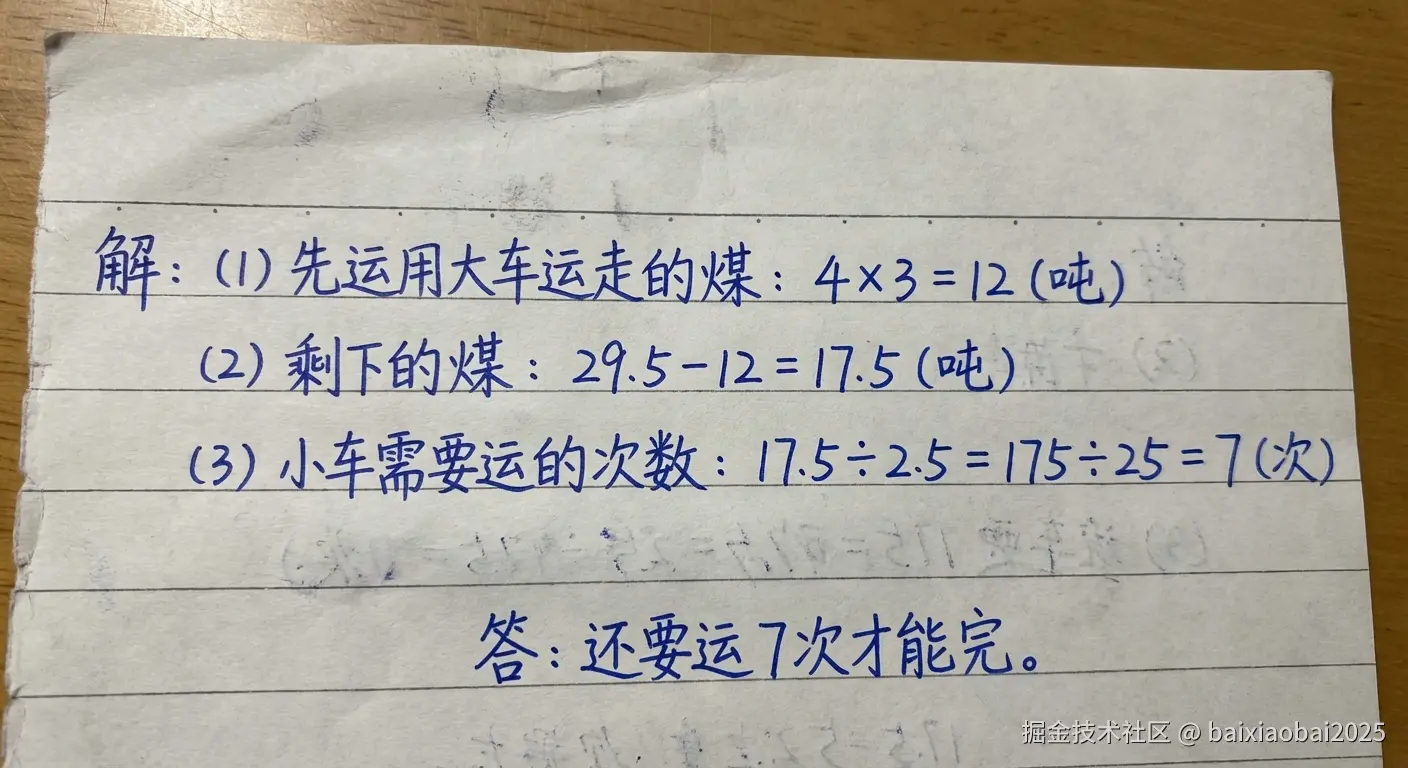 解：(1) 先运用大车运走的煤：4×3=12 (吨)
(2) 剩下的煤：29.5-12=17.5 (吨)
(3) 小车需要运的次数：17.5÷2.5=175÷25=7 (次)
答：还要运7次才能完。
掘金技术社区 @ baixiaobai2025